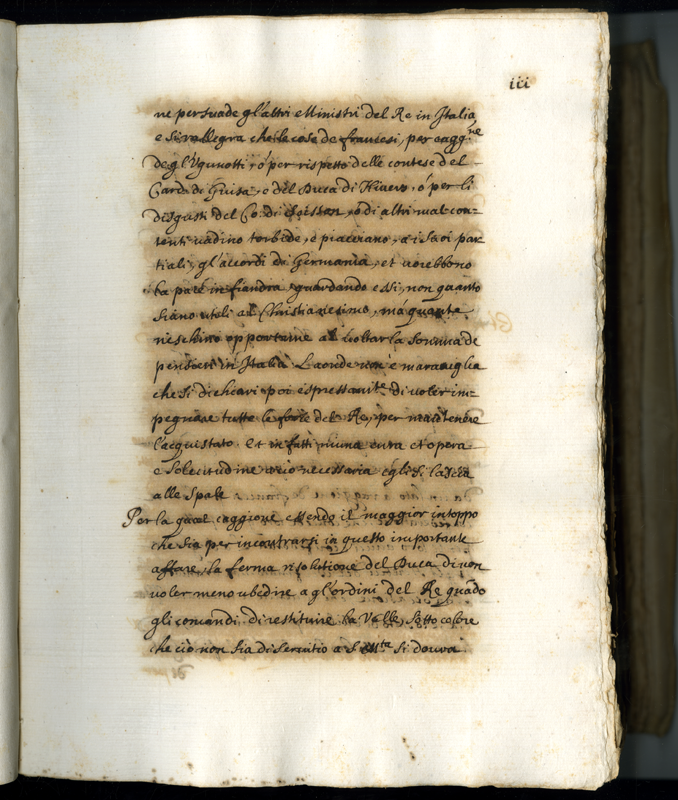 iii
ne persuade gl'altri Ministri del Re in Italia,
e si rallegra che le cose de francesi, per cagg.ne
degl'Ugunotti, ó per rispetto delle contese del
Card. di Guisa, e del Duca di Nivers, ó per li
disgusti del Co: di Soisson, o di altri mal con=
tenti vadino torbide, e piacciano, a i suoi par
tiali, gl'accordi di Germania, et vorebbono
la pace in fiandra, guardando essi, non quanto
siano utili al Christianesimo, má quante
ne schino opportune al voltar la somma de
pensieri in Italia. Laonde non è maraviglia
che si dichiari poi espressam.te di voler im=
pegnare tutte le forze del Re, per mantenere
l'acquistato. Et in fatti niuna cura et opera
e solecitudine a ció necessaria egli si lascia
alle spale
Por la qual caggione essendo il maggior intoppo
che sia per incontrarsi in questo importante
affare, la ferma risolutione del Duca di non
voler meno ubedire a gl'ordini del Re quado
gli comandi di restituire la Valle, sotto colore
che ció non sia di servitio a S. M.ta si dovrá